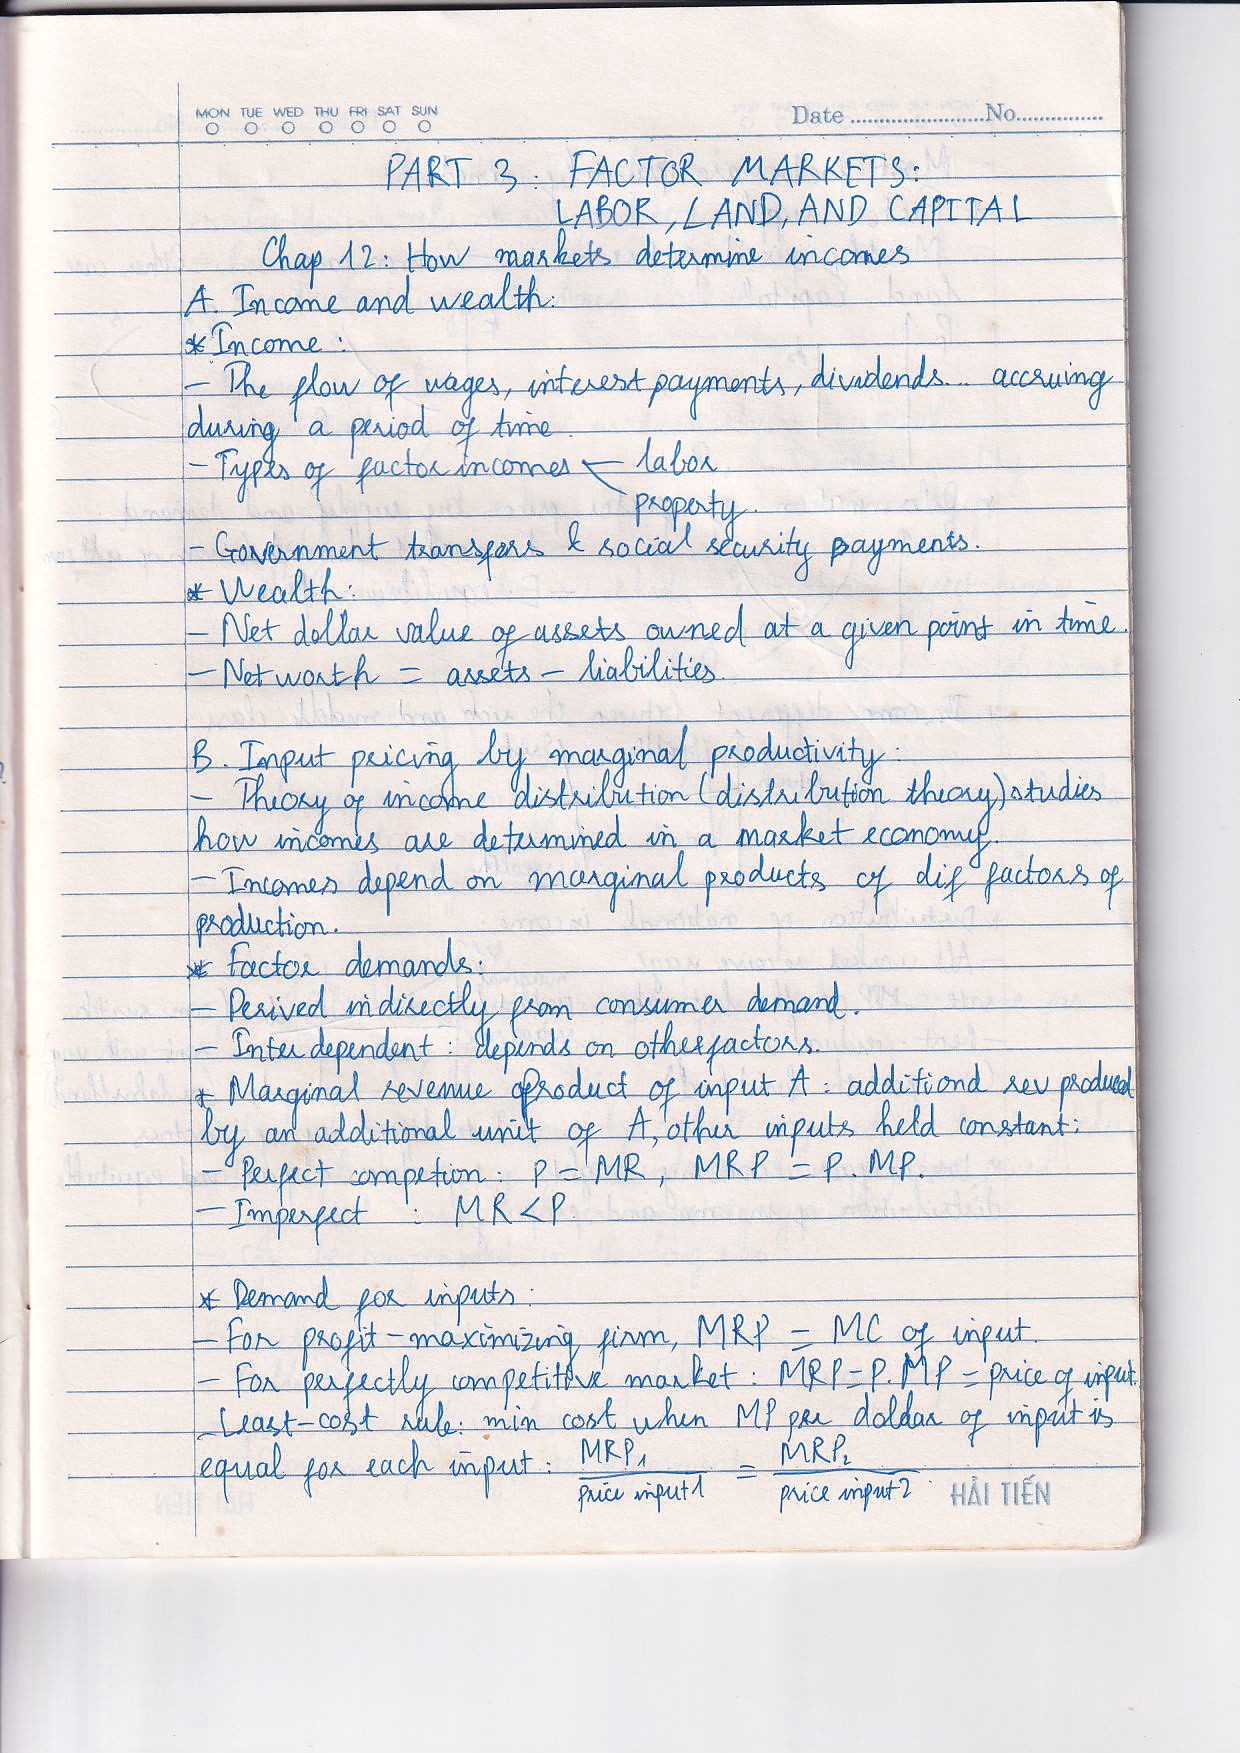 MON TUE WED THU FRI SAT SUN
Date ........................No................
PART 3: FACTOR MARKETS:
LABOR, LAND, AND CAPITAL
Chap 12: How markets determine incomes
A. Income and wealth:
* Income:
- The flow of wages, interest payments, dividends... accruing
during a period of time.
- Types of factor incomes labor
property.
- Government transfers & social security payments.
* Wealth:
- Net dollar value of assets owned at a given point in time.
- Net worth = assets - liabilities.
B. Input pricing by marginal productivity:
- Theory of income distribution (distribution theory) studies
how incomes are determined in a market economy.
- Incomes depend on marginal products of dif factors of
production.
* Factor demands:
- Derived indirectly from consumer demand.
- Interdependent: depends on other factors.
* Marginal revenue product of input A: additional rev produced
by an additional unit of A, other inputs held constant:
- Perfect competion: P = MR, MRP = P. MP.
- Imperfect : MR < P.
* Demand for inputs:
- For profit-maximizing firm, MRP = MC of input.
- For perfectly competitive market: MRP = P. MP = price of input.
- Least-cost rule: min cost when MP per dollar of input is
equal for each input: MRP1 / price input 1 = MRP2 / price input 2.
HẢI TIẾN